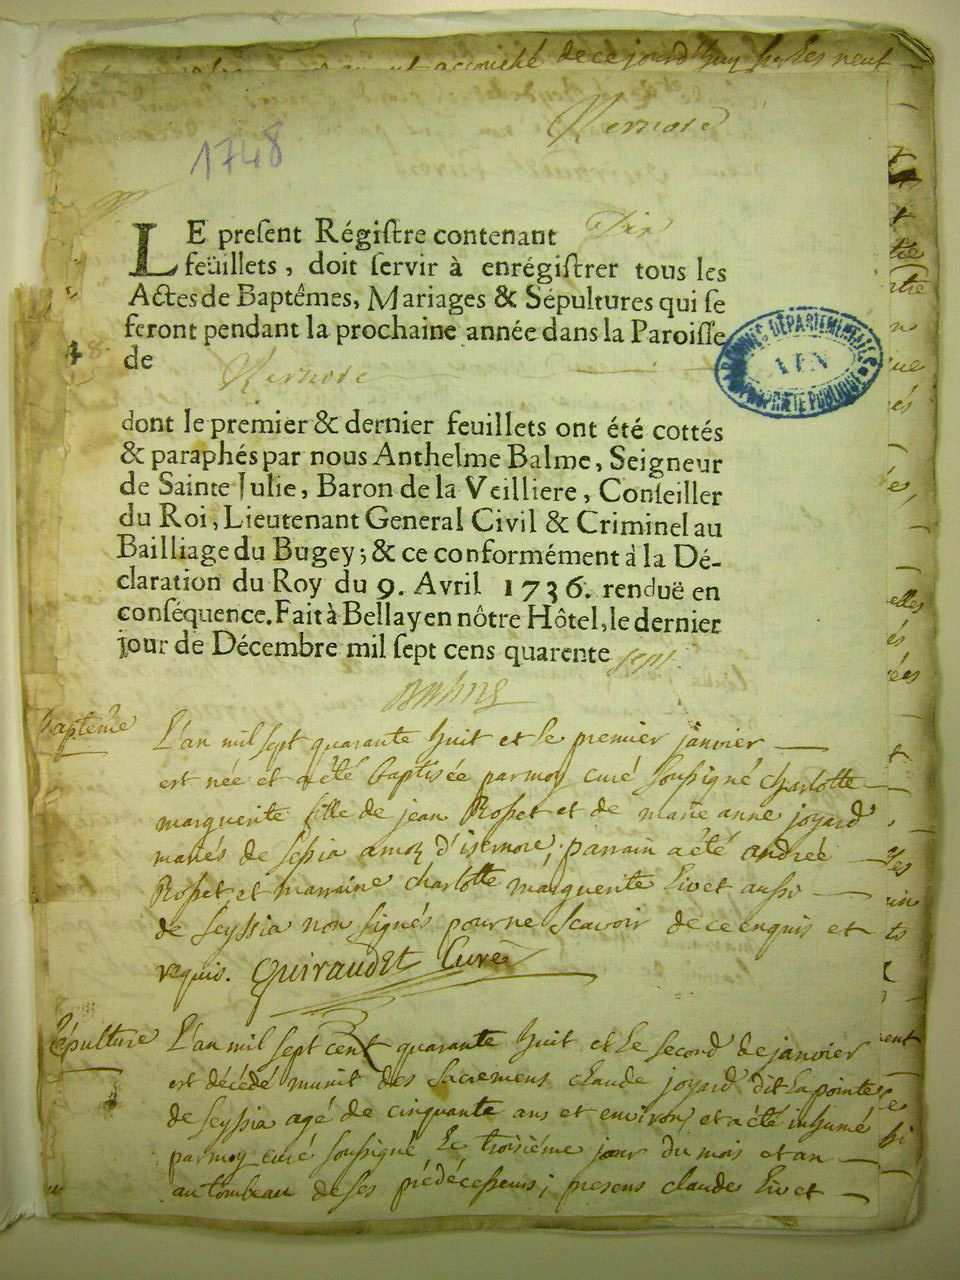 accouché de ce jourd'huy sur les neuf
Kernore
1748
LE preſent Régiſtre contenant Dix
feüillets, doit ſervir à enrégiſtrer tous les
Actes de Baptêmes, Mariages & Sépultures qui ſe
feront pendant la prochaine année dans la Paroiſſe
de Kernore
ARCHIVES DÉPARTEMENTALES
AIN
PROPRIÉTÉ PUBLIQUE
dont le premier & dernier feuillets ont été cottés
& paraphés par nous Anthelme Balme, Seigneur
de Sainte Julie, Baron de la Veilliere, Conſeiller
du Roi, Lieutenant General Civil & Criminel au
Bailliage du Bugey; & ce conformément à la Dé-
claration du Roy du 9. Avril 1736. renduë en
conſéquence. Fait à Bellay en nôtre Hôtel, le dernier
jour de Décembre mil ſept cens quarente sept
Baptême
L'an mil sept quarante huit et le premier janvier
est née et a été baptisée par moy curé soussigné charlotte
marguerite fille de jean Rosset et de marie anne joyard
mariés de Sessia d'isernore; parrain a été andrée
Rosset et marraine charlotte marguerite Livet aussi
de Seyssia non signés pour ne scavoir de ce enquis et
requis. Guiraudet Curé
Sépulture
L'an mil sept cent quarante huit et le second de janvier
est décédé munit des sacremens claude joyard dit la pointe
de Seyssia agé de cinquante ans et environ, et a été inhumé
par moy curé soussigné le troisiéme jour du mois et an
au tombeau de ses prédécesseurs; presens claude Livet